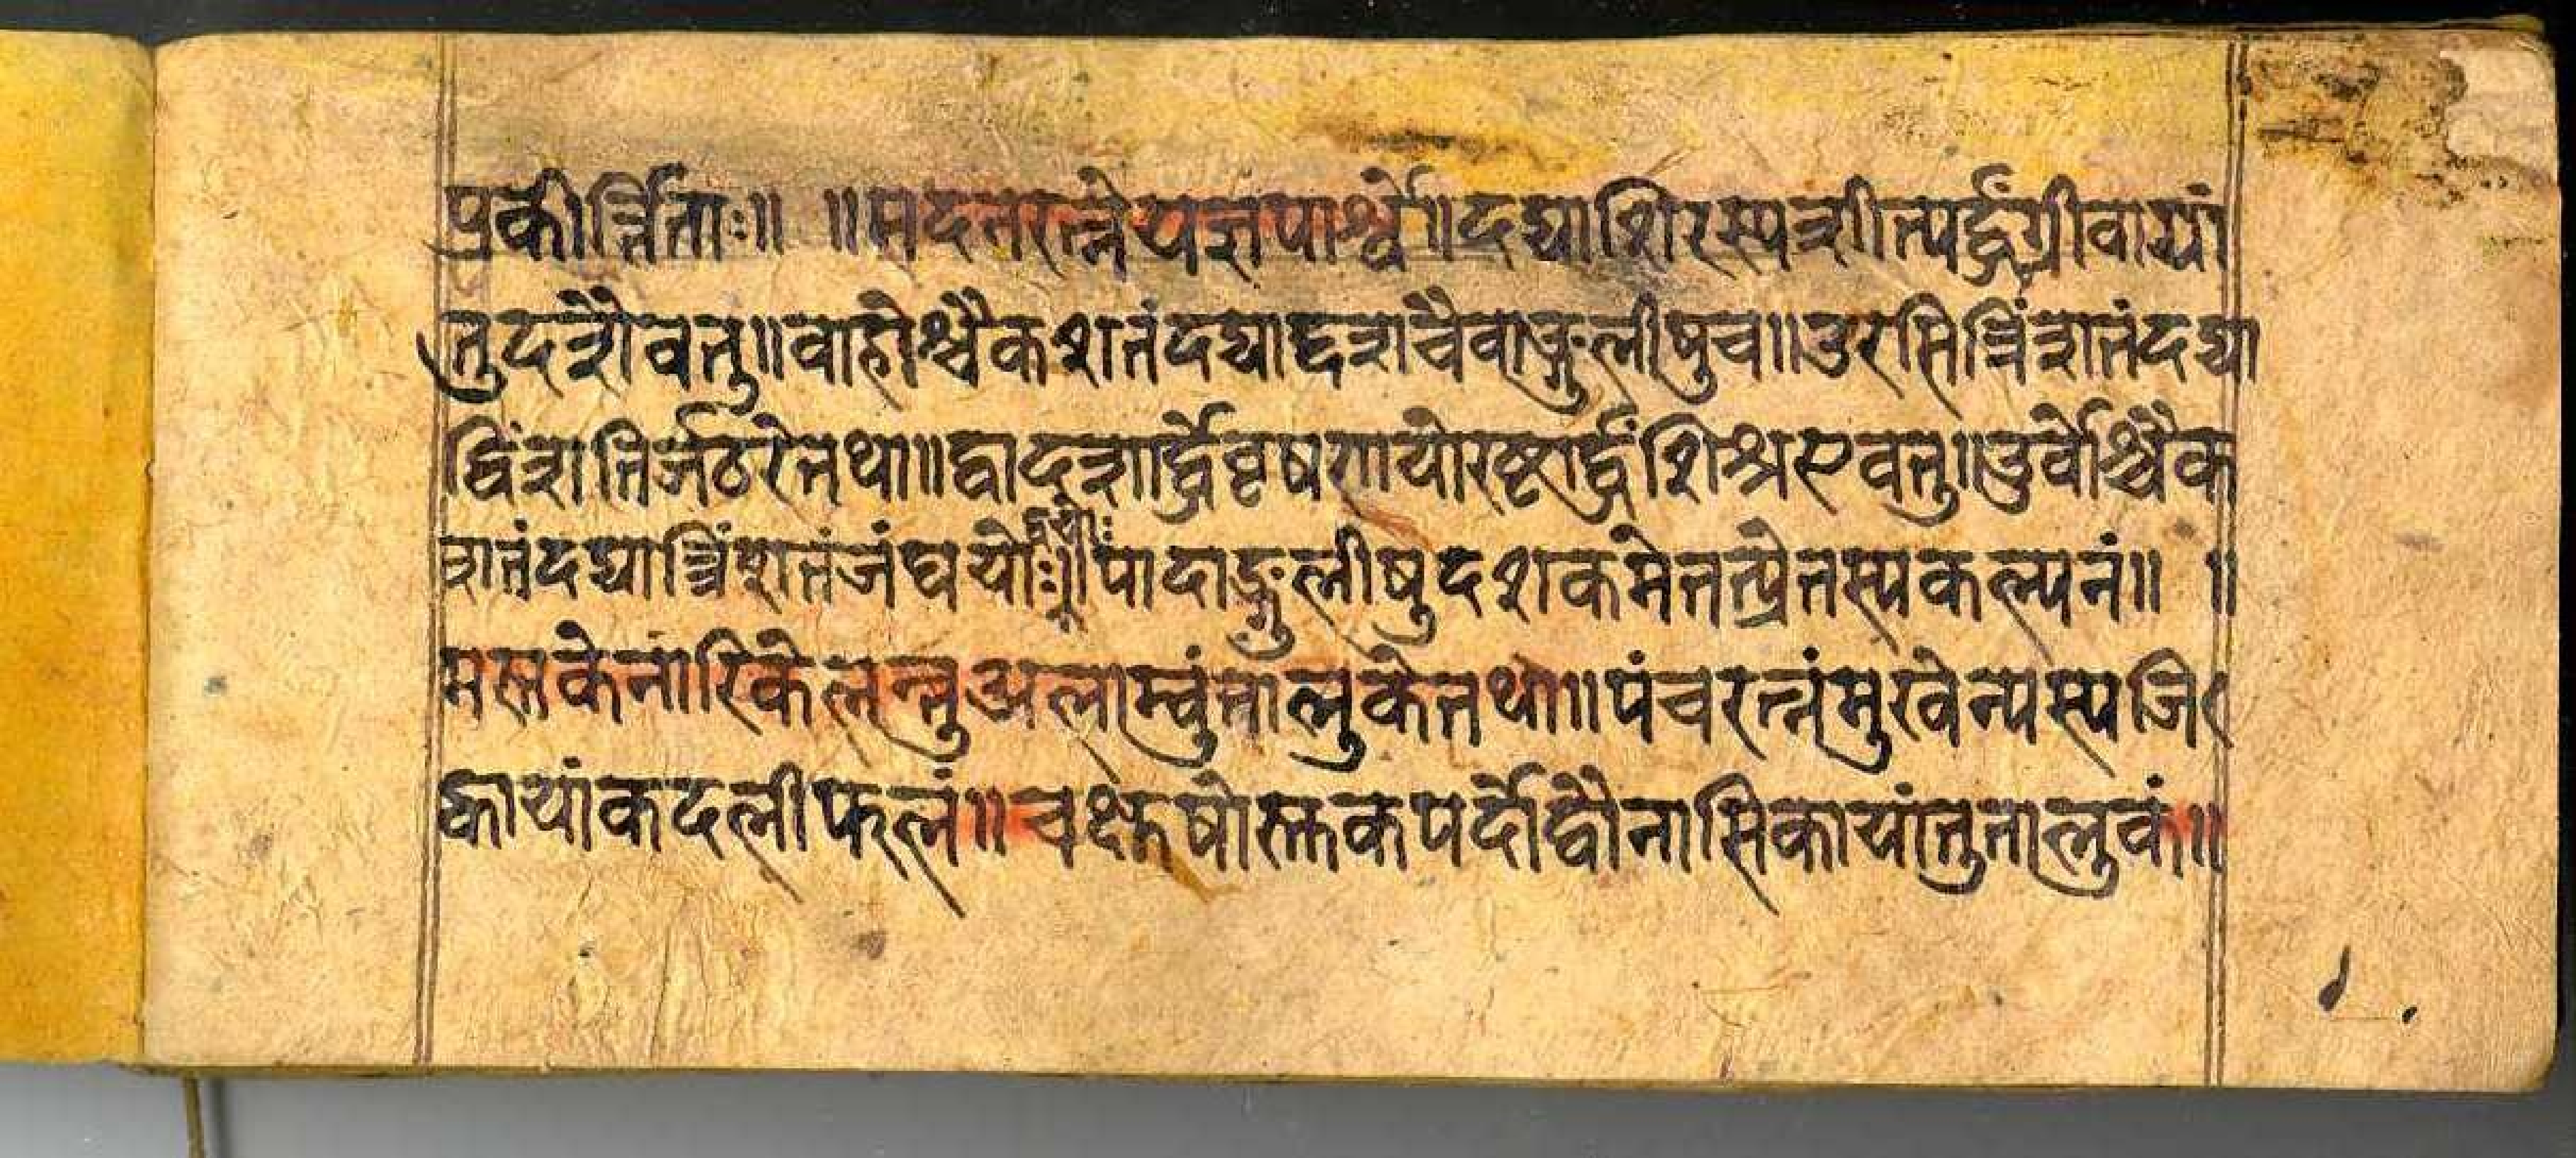 प्रकीर्त्तिताः॥ ॥मदनरत्नेयज्ञपार्श्वे॥दद्याशिरस्यशीत्यर्द्धंग्रीवायां
तुदशैवतु॥वाहोश्चैकशतंदद्याद्दशचैवाङ्गुलीषुच॥उरसित्रिंशतंदद्या
द्विंशतिर्जठरेतथा॥द्वादशार्द्धंवृषणयोरष्टार्द्धंशिश्नएवतु॥उर्वोश्चैक
शतंदद्यात्रिंशतंजंघयोः॥पादाङ्गुलीषुदशकमेतत्प्रेतस्यकल्पनं॥ ॥
मस्तकेनारिकेलन्तुअलाम्बुंतालुकेतथा॥पंचरत्नंमुखेन्यस्यजि
ह्वायांकदलीफलं॥चक्षुषोस्तुकपर्दोद्वौनासिकायांतुतालुकं॥